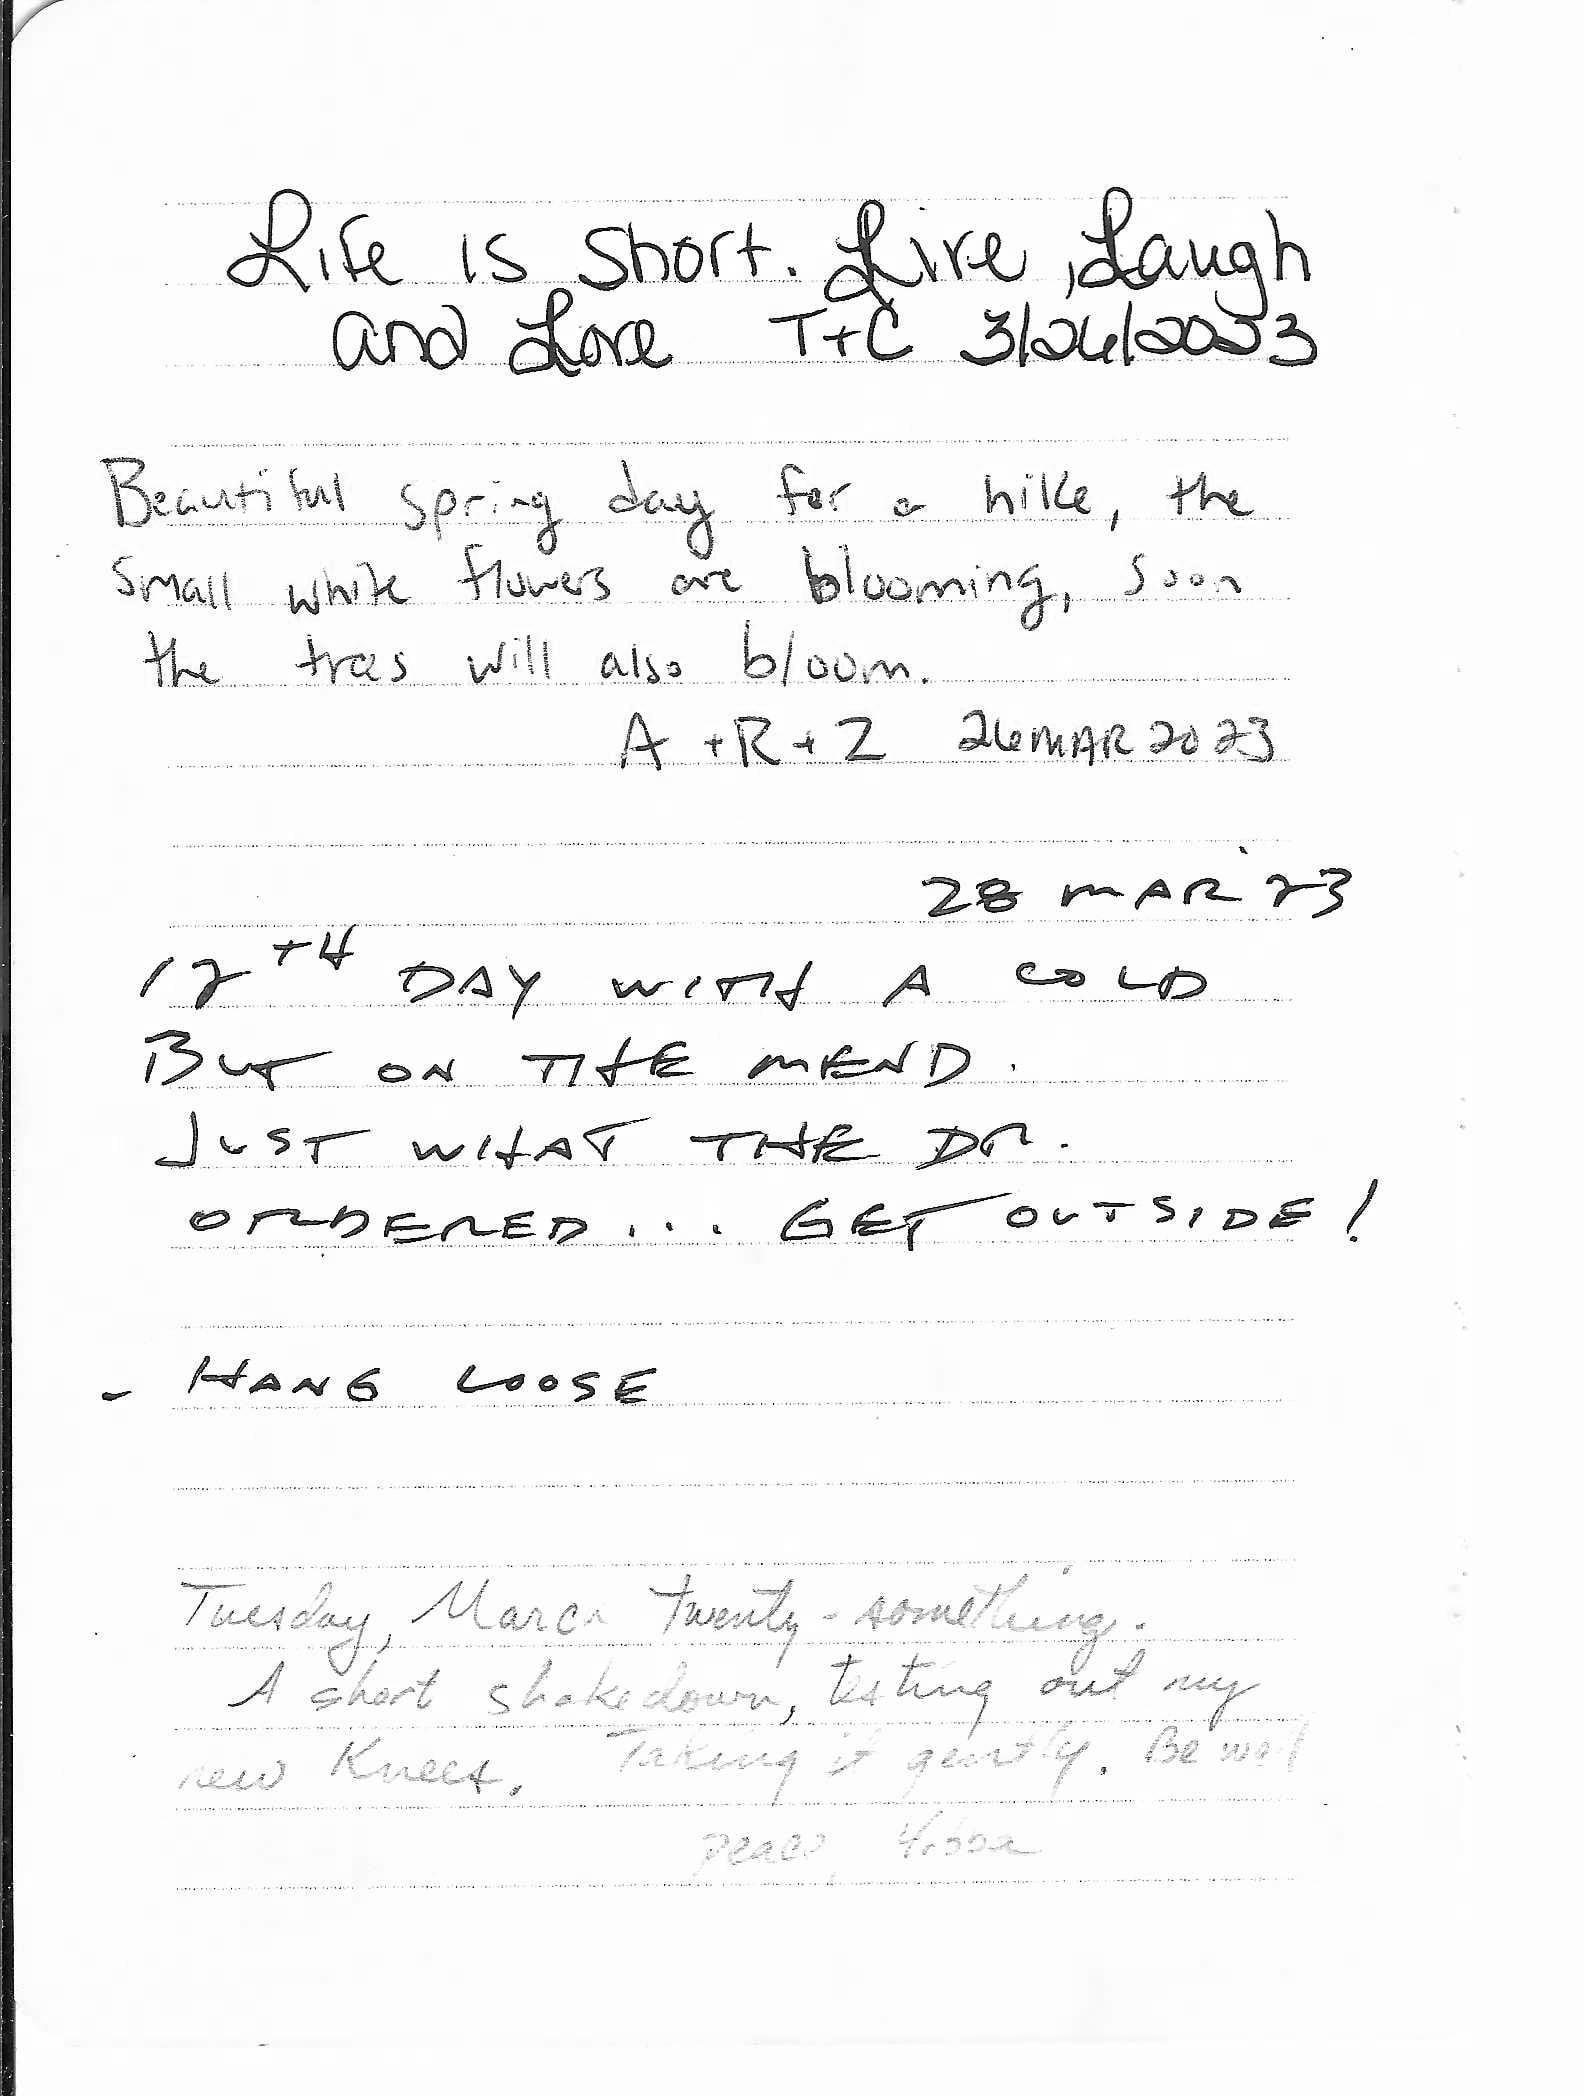 Life is short. Live, Laugh
and Love T+C 3/26/2023
Beautiful spring day for a hike, the
small white flowers are blooming, soon
the trees will also bloom.
A + R + Z 26 MAR 2023
28 MAR '23
12TH DAY WITH A COLD
BUT ON THE MEND.
JUST WHAT THE DR.
ORDERED... GET OUTSIDE!
- HANG LOOSE
Tuesday, March twenty-something.
A short shakedown, testing out my
new Knees. Taking it gently. Be well
peace,